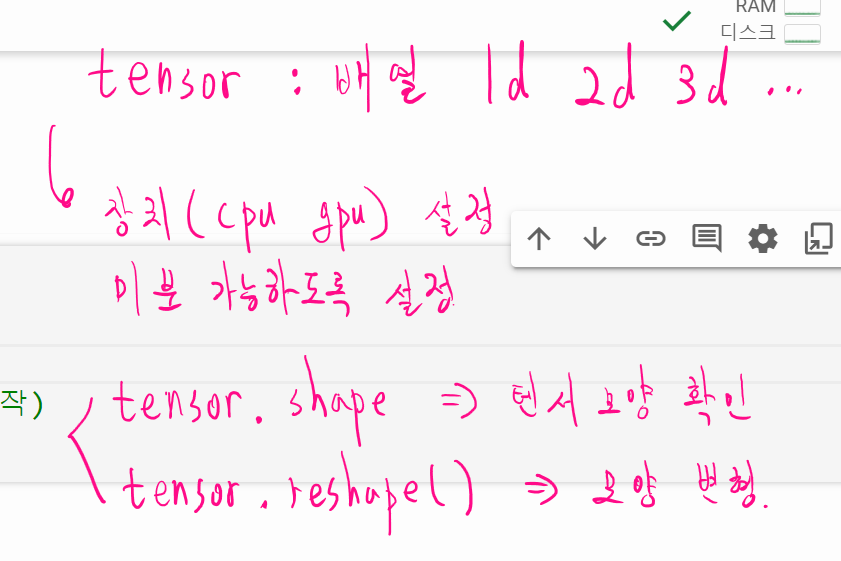 RAM
디스크
tensor : 배열 1d 2d 3d ...
장치(cpu gpu) 설정
미분 가능하도록 설정
작)
tensor. shape => 텐서 모양 확인
tensor.reshape() => 모양 변형.